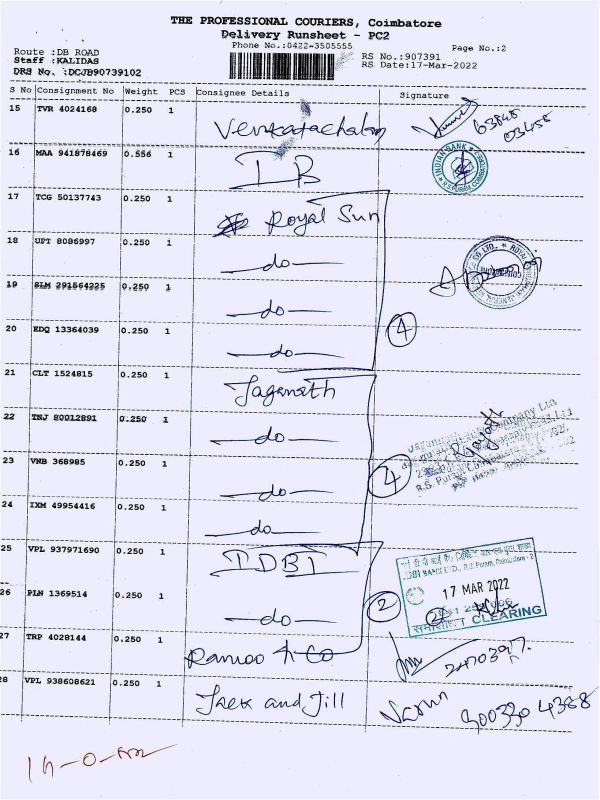 THE PROFESSIONAL COURIERS, Coimbatore
Delivery Runsheet - PC2
Phone No.:0422-3505555
Page No.:2
Route :DB ROAD
Staff :KALIDAS
DRS No. :DCJB90739102
RS No.:907391
RS Date:17-Mar-2022
S No Consignment No Weight PCS Consignee Details Signature
15 TVR 4024168 0.250 1 Venkatachalam 63848
03458
16 MAA 941878469 0.556 1 IB INDIAN BANK
17 TCG 50137743 0.250 1 Royal Sun
18 UPT 8086997 0.250 1 -do-
19 SLM 291564225 0.250 1 -do-
20 EDQ 13364039 0.250 1 -do- 4
21 CLT 1524815 0.250 1 Jaganath
22 TNJ 80012891 0.250 1 -do-
23 VNB 368985 0.250 1 -do- 4
24 IXM 49954416 0.250 1 -do-
25 VPL 937971690 0.250 1 IDBI
IDBI BANK LTD., R.S. Puram, Coimbatore - 2
17 MAR 2022
26 PLN 1369514 0.250 1 -do- 2
समाशोधन CLEARING
27 TRP 4028144 0.250 1 Ramoo & Co 2470397.
28 VPL 938608621 0.250 1 Jack and Jill Varun 900330 4388